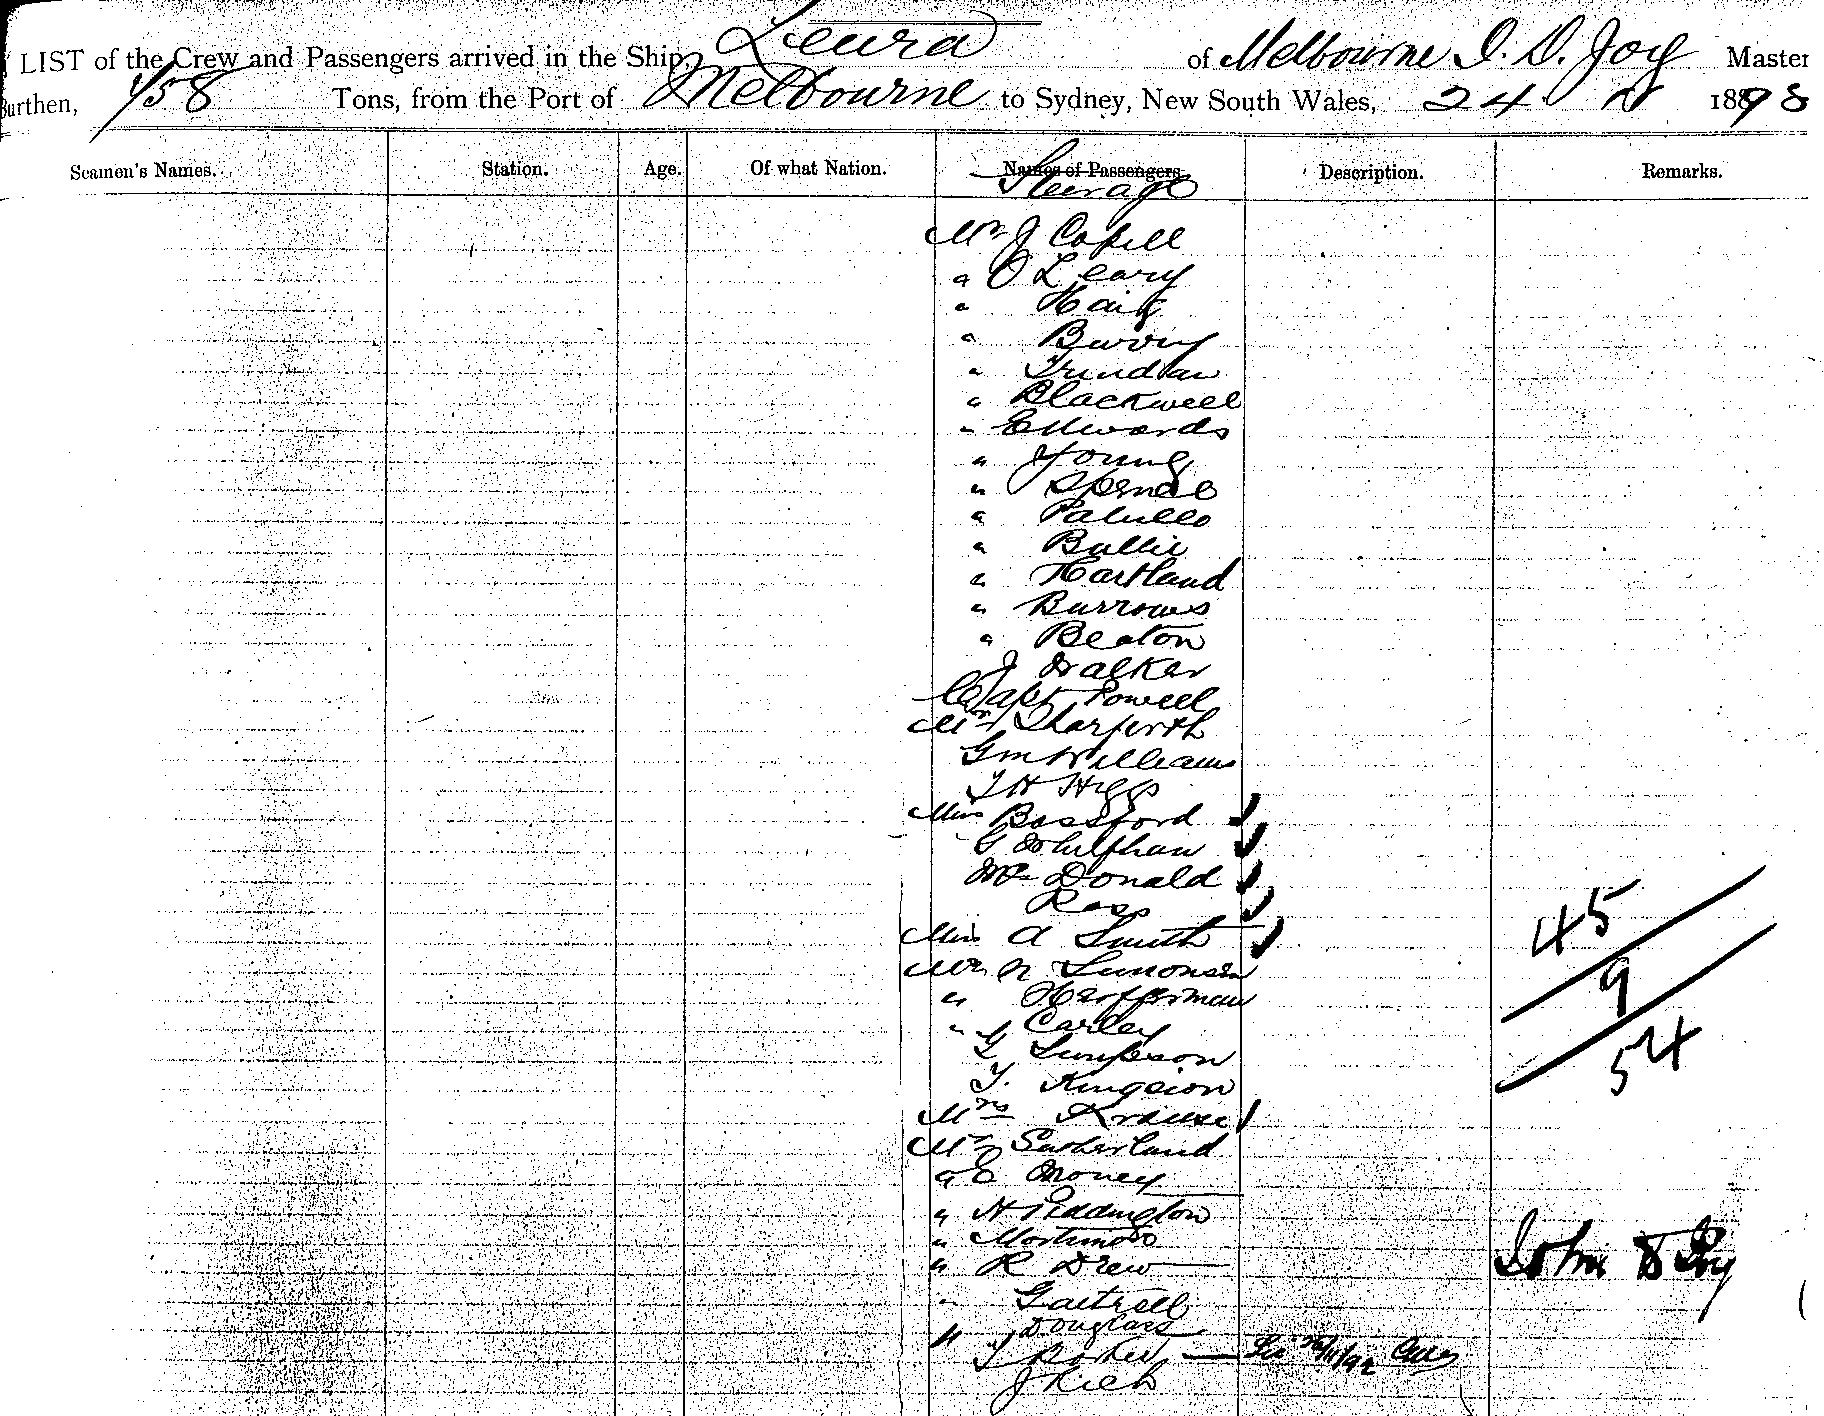 LIST of the Crew and Passengers arrived in the Ship, Leura of Melbourne J. D. Joy Master
Burthen, Tons, from the Port of Melbourne to Sydney, New South Wales, 24 1898
Seamen's Names. Station. Age. Of what Nation. Names of Passengers. Description. Remarks.
Steerage
Mr J Cahill
" O Leary
"
"
"
" Blackwell
" Edwards
" Young
"
"
"
" Hartland
" Burrows
" Beaton
J Walker
Capt Powell
Mr
G m Williams
T H Higgs
Miss Bassford
G
Mc Donald
Ross
Miss A Smith
Mr N Simonsen
" Heafferman
" Carley
G Simpson
T. Kingston
Mrs Krause
Mr Sutherland
" E Money
" H Piddington
" Mortimore
" R Drew
" Gartrell
Douglass
"
J Rich
45
9
54
John D Joy